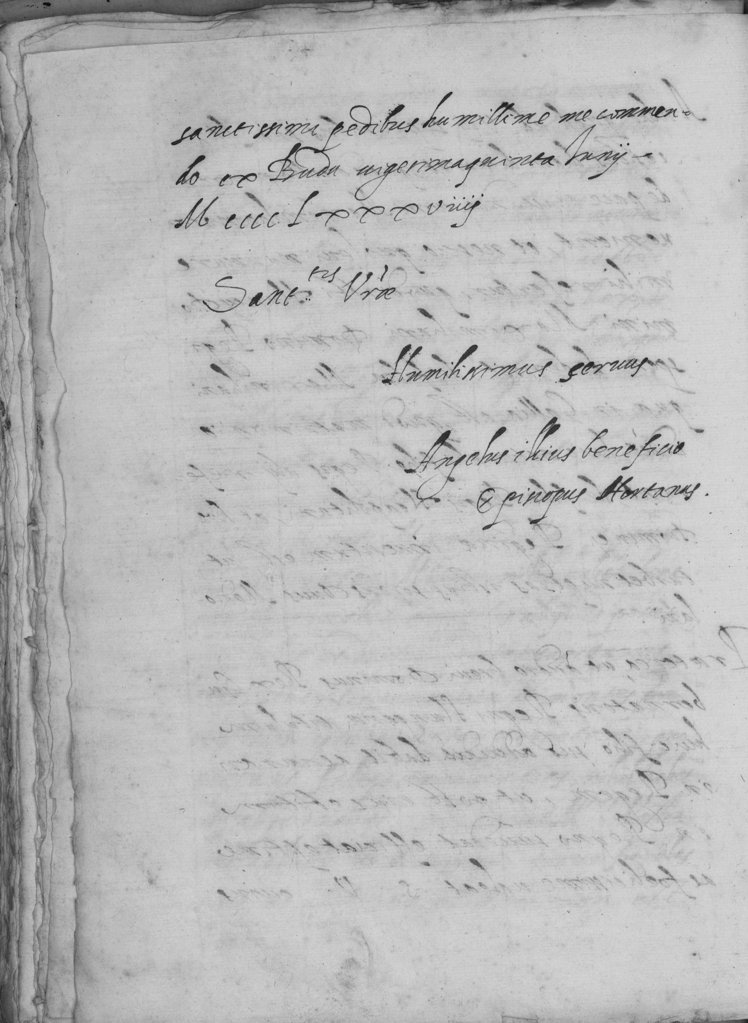 sanctissimis pedibus humillime me commen-
do ex Buda uigesimaquinta Iunij -
M cccc L xxxviiij
Sant.tis Vrae
Humilissimus seruus
Angelus illius beneficio
Episcopus Hortanus.